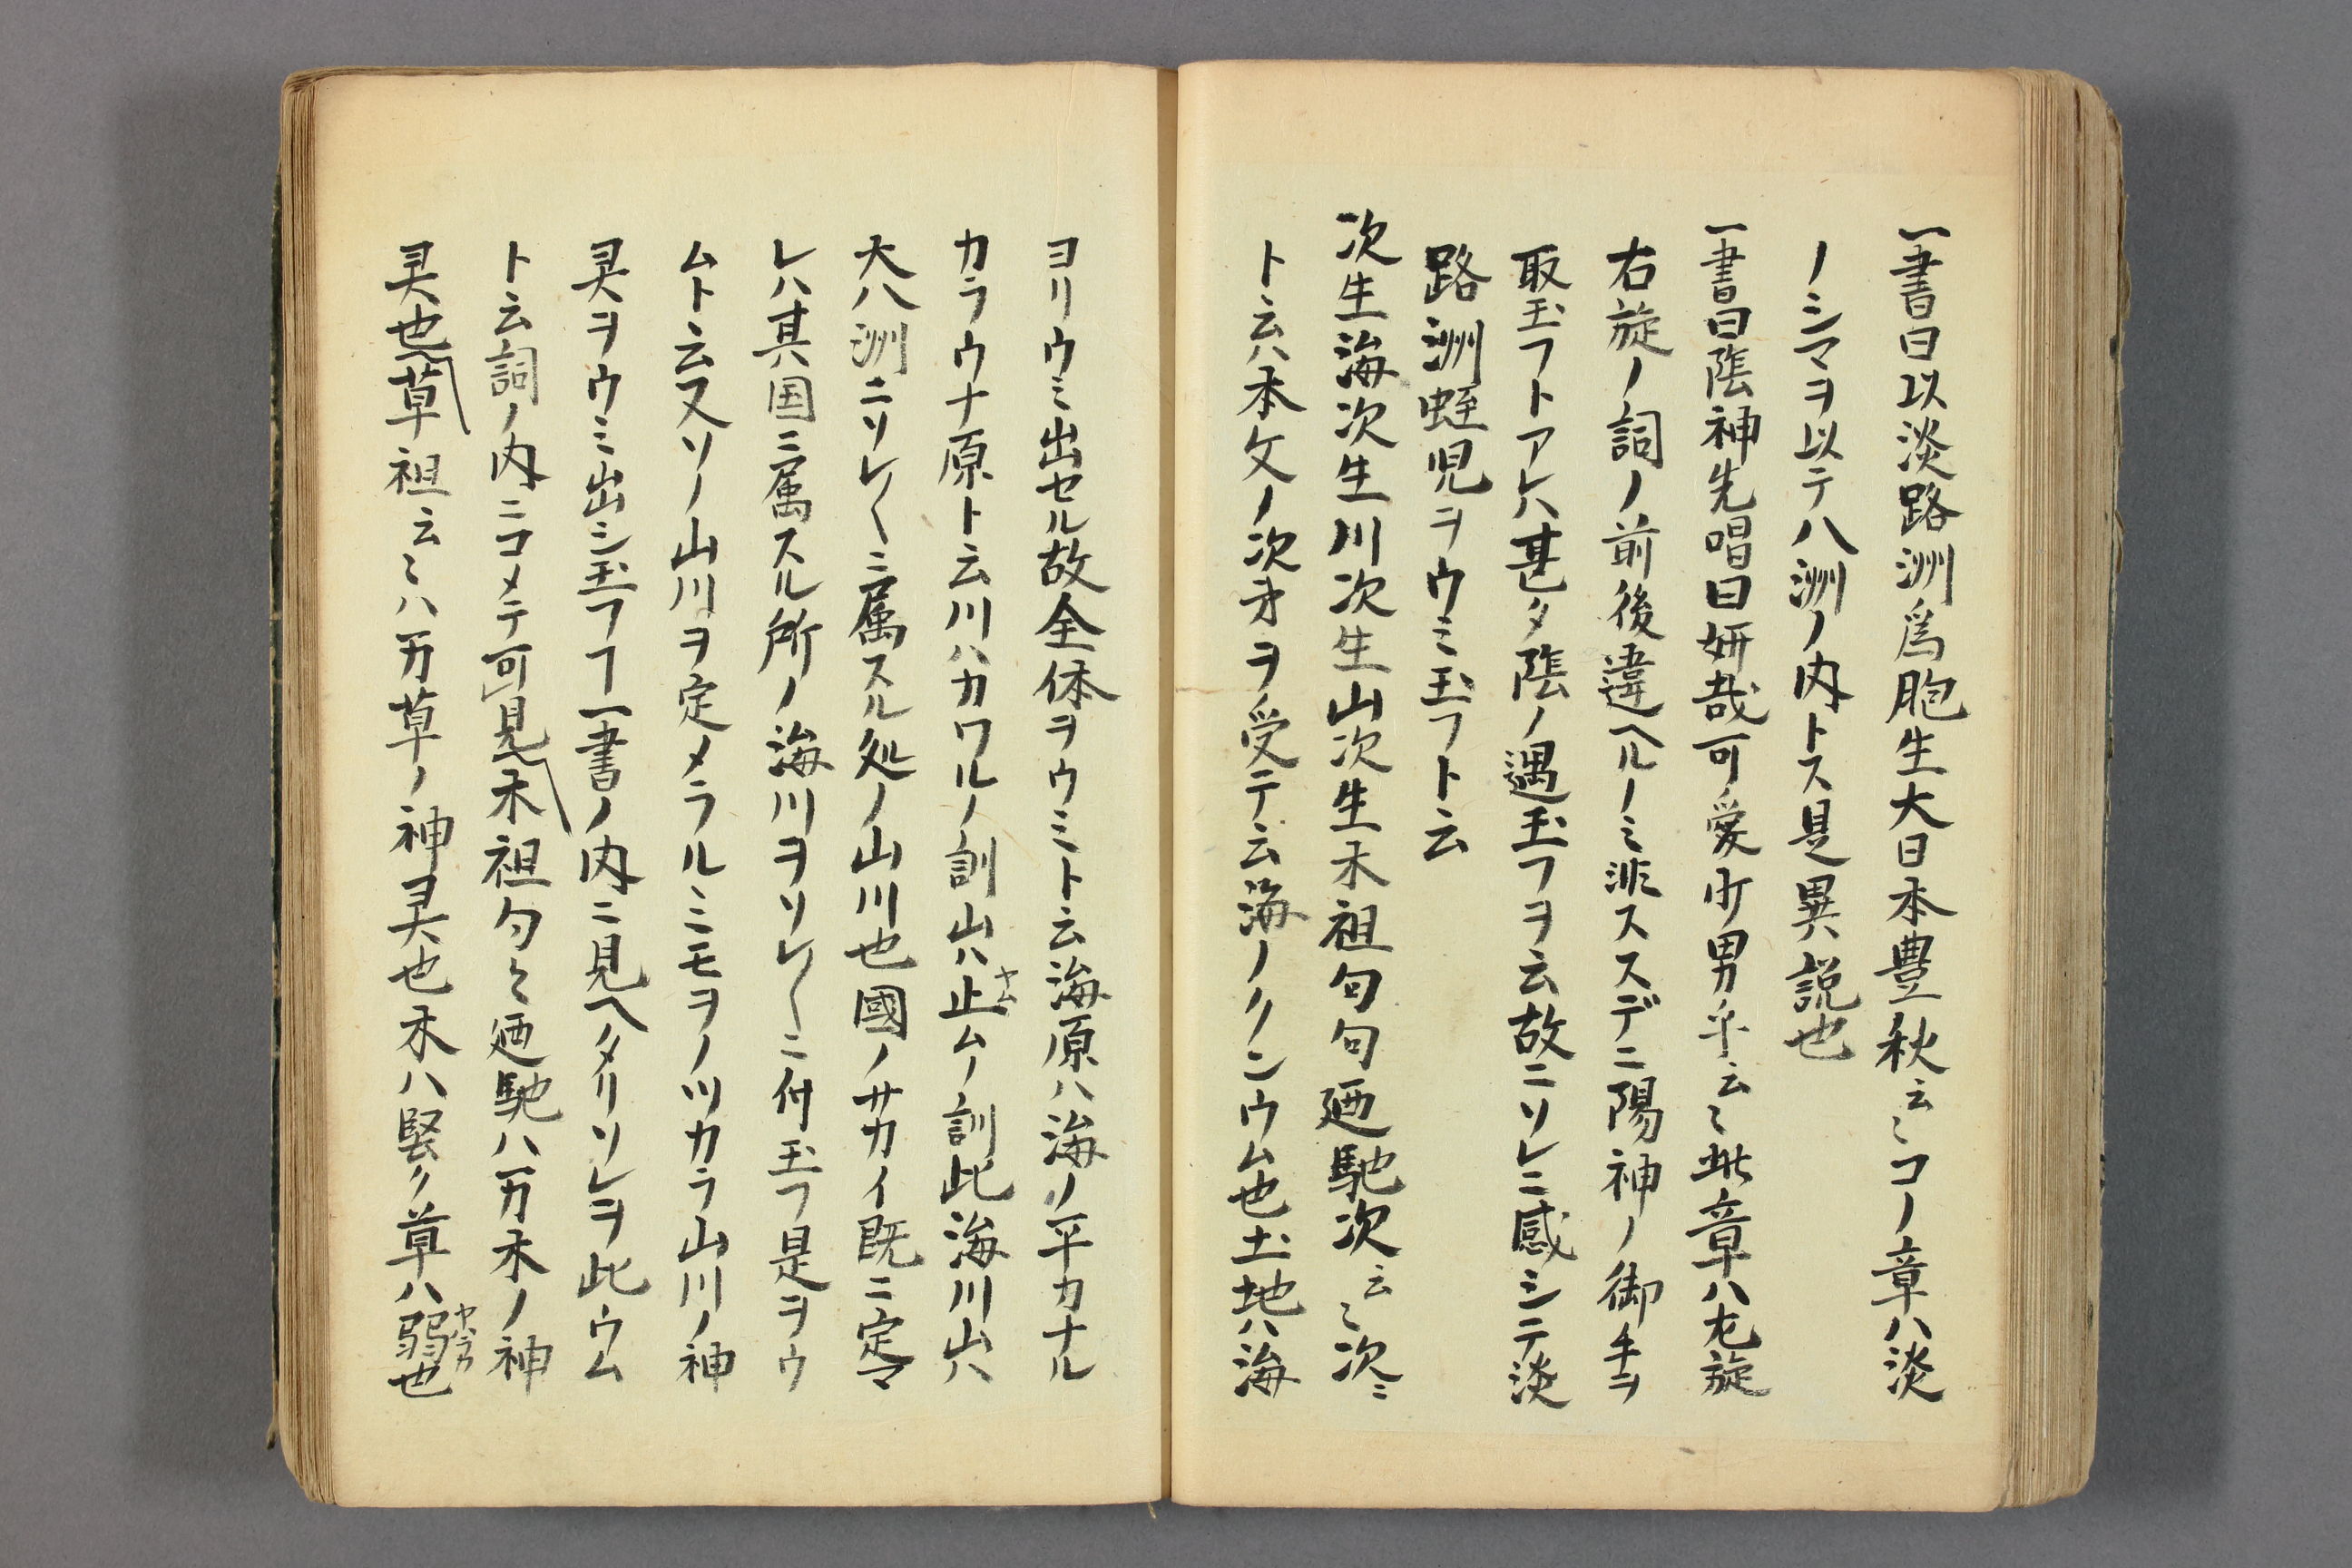 一書曰以淡路洲爲胞生大日本豊秋云〻コノ章ハ淡
ノシマヲ以テ八洲ノ内トス是異説也
一書曰陰神先唱曰妍哉可愛少男乎云〻此章ハ左旋
右旋ノ詞ノ前後違ヘルノミ非ススデニ陽神ノ御手ヲ
取玉フトアレハ甚タ陰ノ遇玉フヲ云故ニソレニ感シテ淡
路洲蛭児ヲウミ玉フト云
次生海次生川次生山次生木祖句句廼馳次云〻次ニ
ト云ハ本文ノ次才ヲ受テ云海ノクンウム也土地ハ海
ヨリウミ出セル故全体ヲウミト云海原ハ海ノ平カナル
カラウナ原ト云川ハカワルノ訓山ハ止ムノ訓此海川山ハ
ヤム
大八洲ニソレ〱ニ属スル処ノ山川也國ノサカイ既ニ定マ
レハ其国ニ属スル所ノ海川ヲソレ〱ニ付玉フ是ヲウ
ムト云又ソノ山川ヲ定メラルヽミモヲノツカラ山川ノ神
灵ヲウミ出シ玉フヿ一書ノ内ニ見ヘタリソレヲ此ウム
ト云詞ノ内ニコメテ可見木祖勾〻廼馳ハ万木ノ神
灵也草祖云〻ハ万草ノ神灵也木ハ堅ク草ハ弱也
ヤハラカ